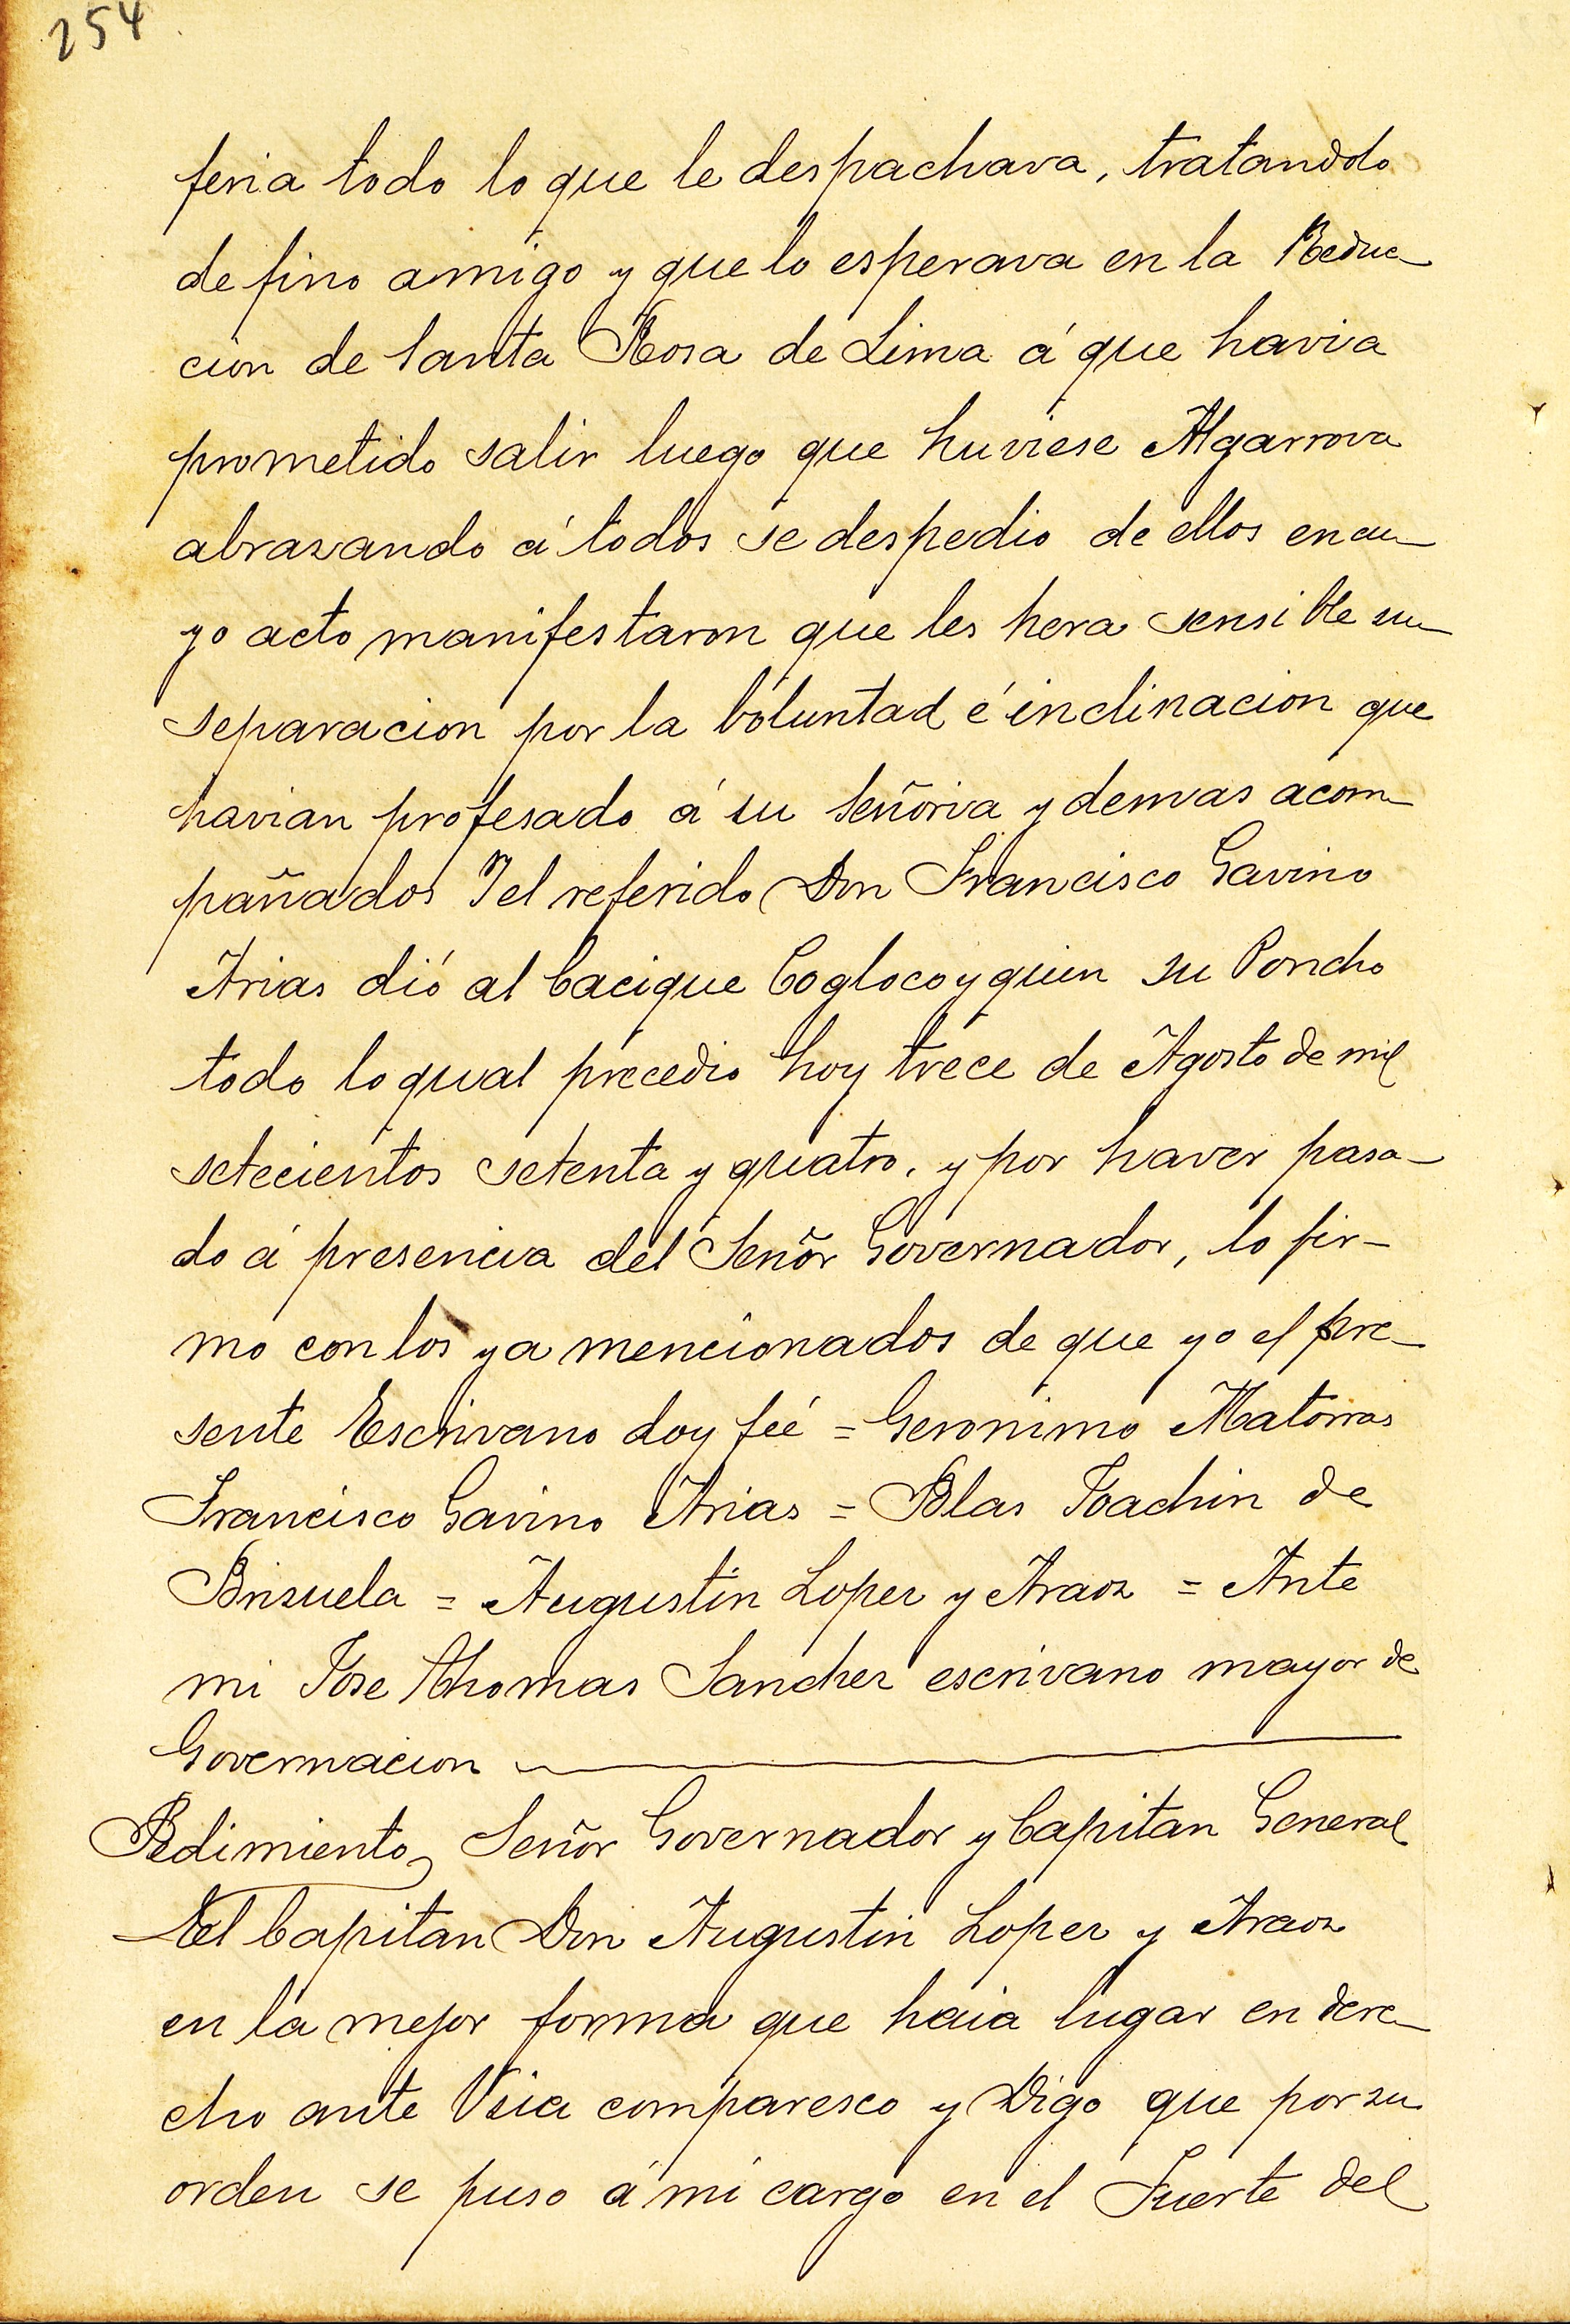 254
feria todo lo que le despachava, tratandolo
de fino amigo y que lo esperava en la Reduc-
cion de Santa Rosa de Lima á que havia
prometido salir luego que huviese Algarrova
abrazando á todos se despedio de ellos en cu-
yo acto manifestaron que les hera sensible su
separacion por la voluntad é inclinacion que
havian profesado á su Señoria y demas acom-
pañados Y el referido Don Francisco Gavino
Arias dió al Cacique Coglocoyquin su Poncho
todo lo qual precedio hoy trece de Agosto de mil
setecientos setenta y quatro, y por haver pasa-
do á presencia del Señor Governador, lo fir-
mo con los ya mencionados de que yo el pre-
sente Escrivano doy feé = Geronimo Matorras
Francisco Gavino Arias = Blas Joachin de
Brizuela = Augustin Lopez y Araoz = Ante
mi Jose Thomas Sanchez escrivano mayor de
Governacion
Pedimiento Señor Governador y Capitan General
El Capitan Don Augustin Lopez y Araoz
en la mejor forma que haia lugar en dere-
cho ante Vsia comparesco y Digo que por su
orden se puso á mi cargo en el Fuerte del